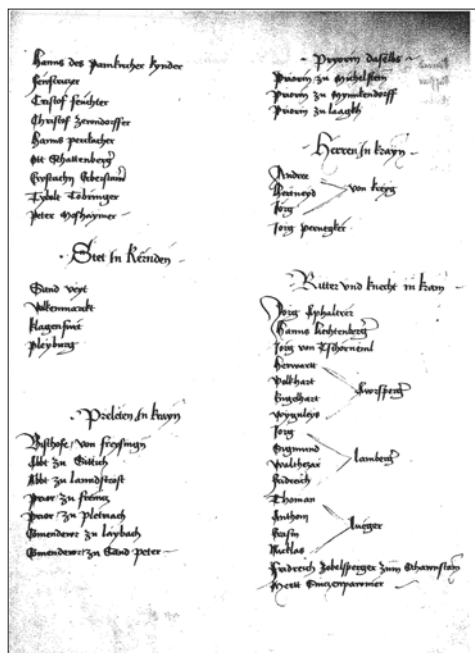 Hanns des Painricher kynder
Cristof feuchter
Christof Zerendorffer
Hanns perckacher
Ott Schattenberg
Eystachy Eberstain
Tybolt Tobringer
Peter Hofhaymer
Stet in Kernden
Sand veyt
Volkenmarckt
klagenfurt
pleyburg
Prelaten in krayn
Bisthofe von freysingn
Abt zu Sittich
Abt zu Lanndstrost
Prior zu frenicz
Prior zu pletriach
Comendewr zu laybach
Comendewr zu Sand peter
Pryorin daselbs
Priorin zu Michelstein
Priorin zu Mynnkendorff
Priorin zu laagkh
Herren in krayn
Andree
Hertneyd
Jorg
von kreyg
Jorg pernegker
Ritter und knecht in krain
Jorg Aphalterer
Hanns liechtenberg
Jorg von Tschorneml
Herwartt
Volkhart
Engelhart
Wygnleys
Awrsperg
Jorg
Sigmund
Balthezar
Fridreich
lamberg
Thoman
Anthom
Erasm
Nicklas
lueger
Fridreich Zobelsperger zum Scharnstain